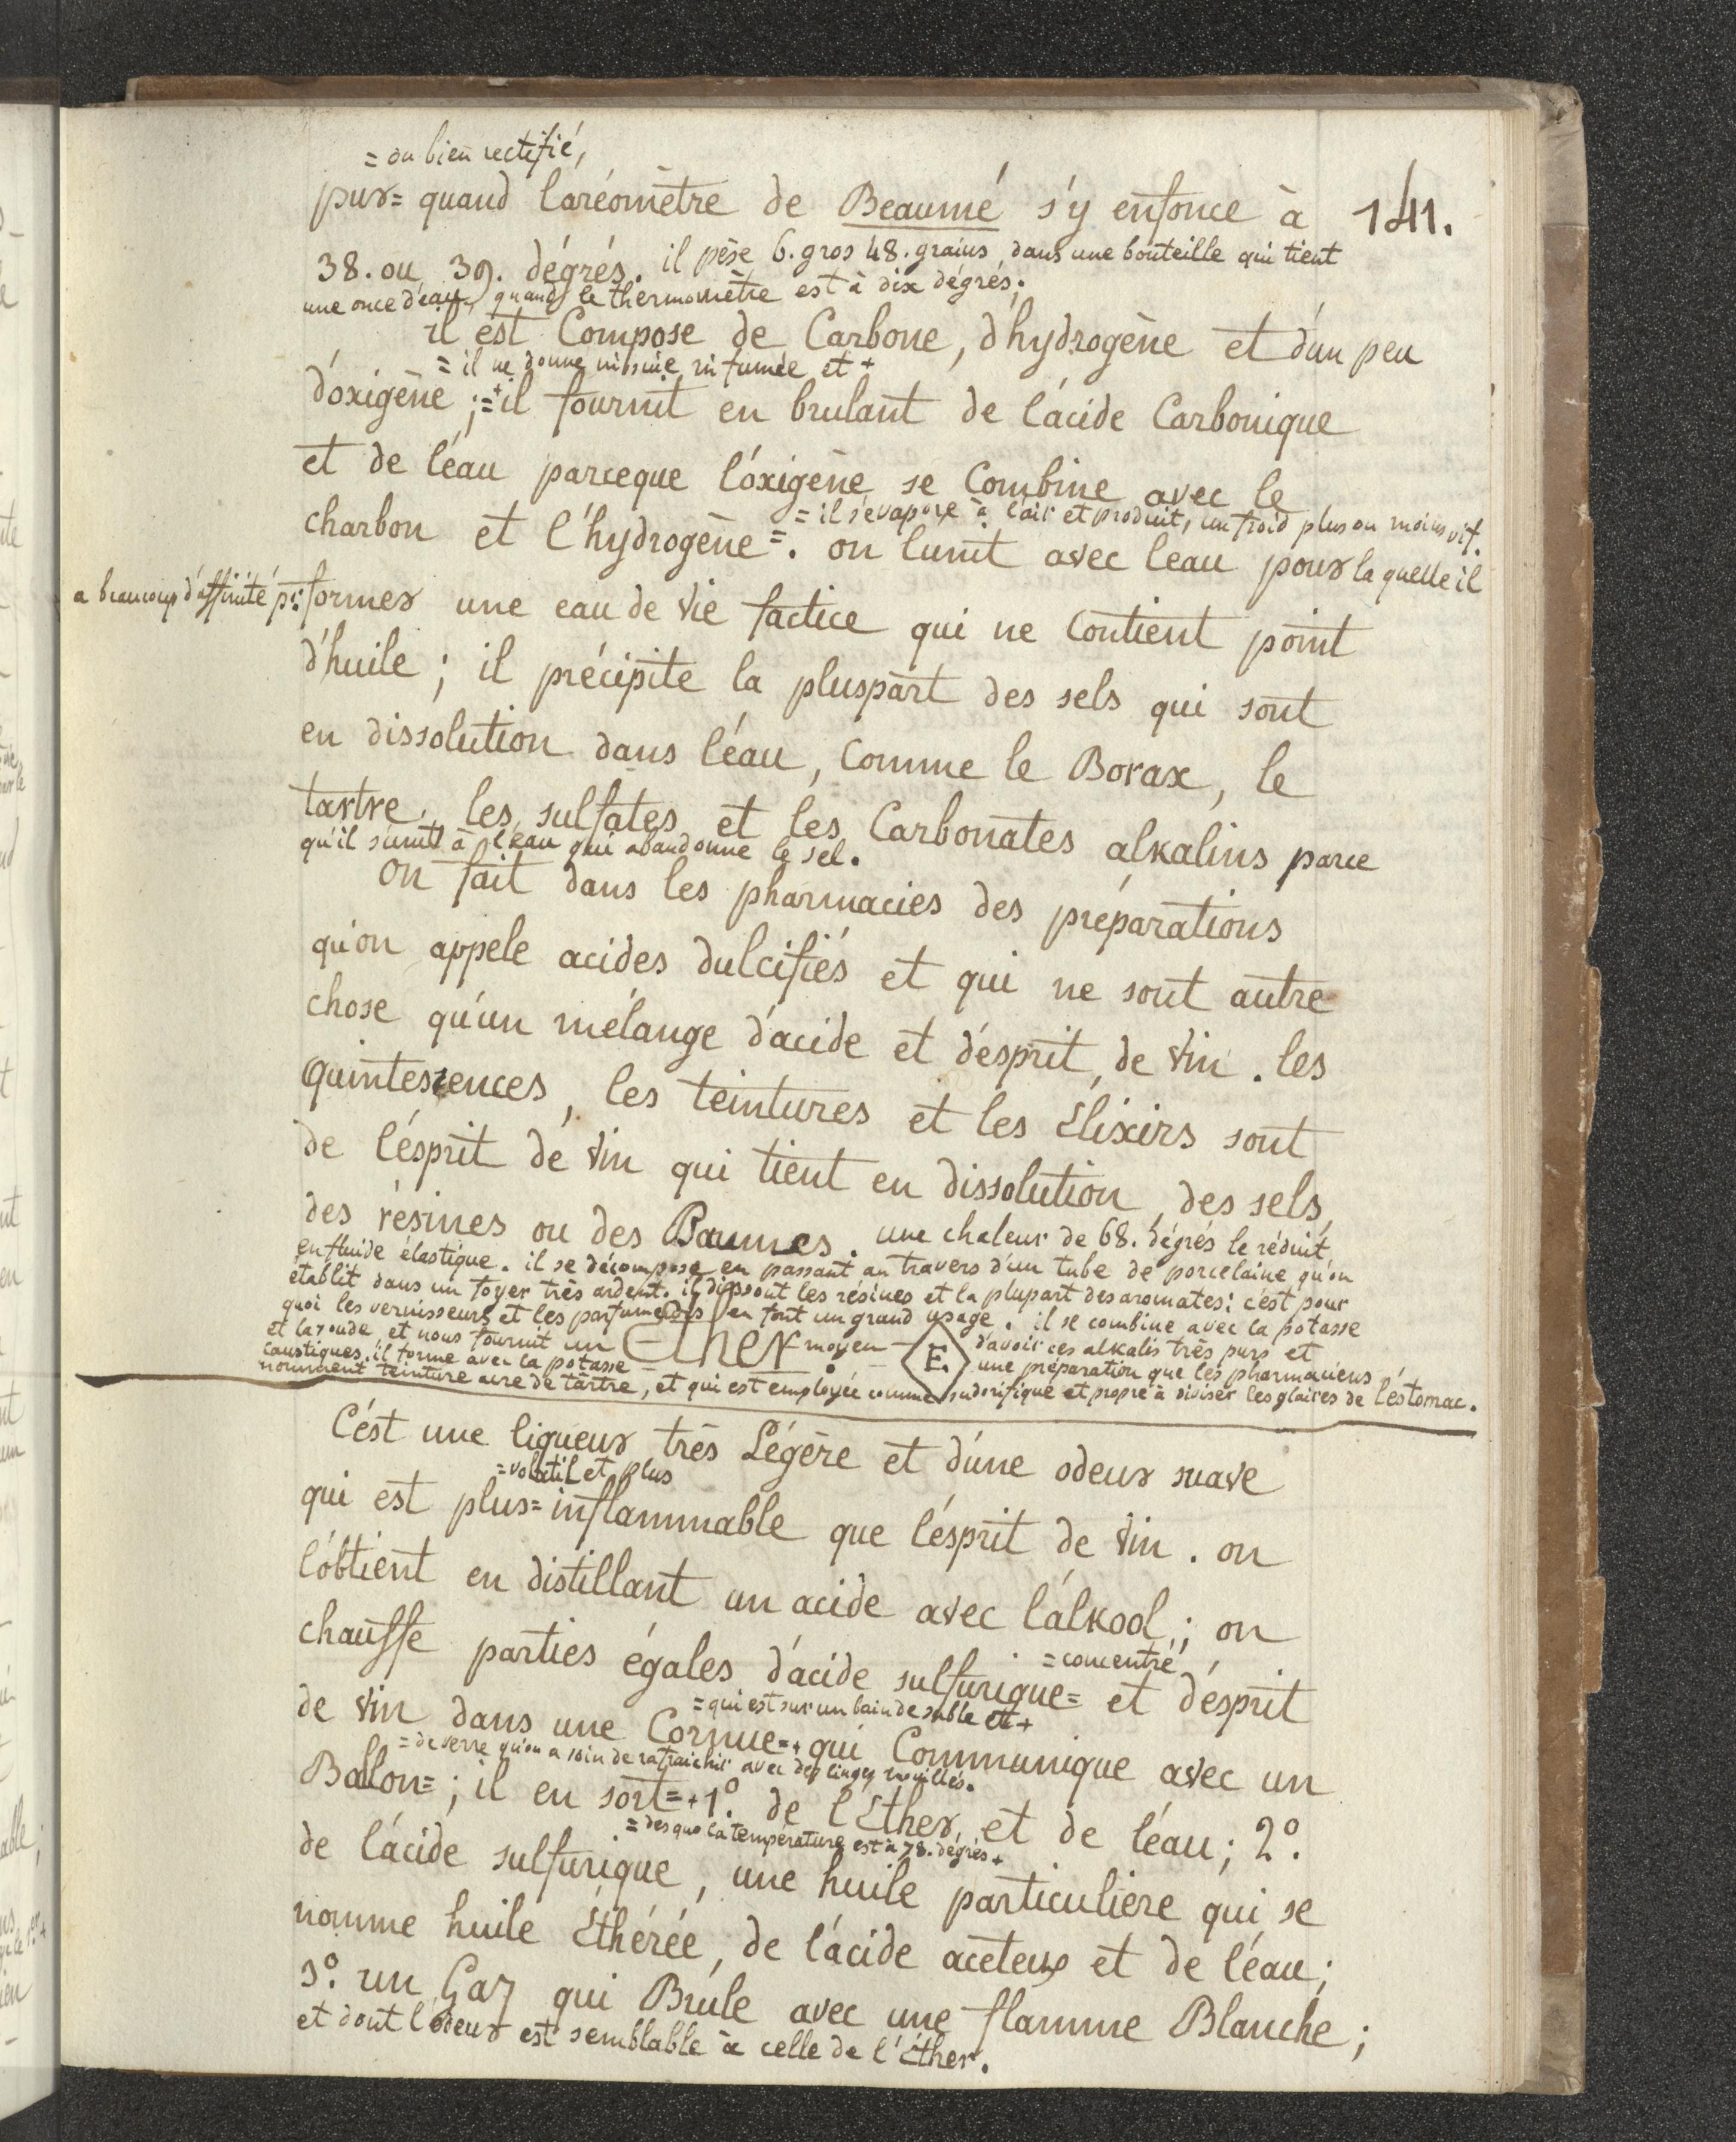 = ou bien rectifié,
pur= quand l'aréomètre de Beaumé s'y enfonce à 141.
38. ou 39. dégrés. il pèse 6. gros 48. grains, dans une bouteille qui tient
une once d'eau, quand le thermomètre est à dix dégrés.
il est Composé de Carbone, d'hydrogène et d'un peu
= il ne donne ni suie ni fumée et +
d'oxigène ;=+ il fournit en brulant de l'acide Carbonique
et de l'eau parceque l'oxigène se Combine avec le
= il s'évapore à l'air et produit, un froid plus ou moins vif.
charbon et l'hydrogène=. on l'unit avec l'eau pour la quelle il
a beaucoup d'affinité pr: former une eau de vie factice qui ne Contient point
d'huile ; il précipite la pluspart des sels qui sont
en dissolution dans l'éau, Comme le Borax, le
tartre, les sulfates et les Carbonates alkalins parce
qu'il s'unit à l'éau qui abandonne le sel.
On fait dans les pharmacies des préparations
qu'on appele acides dulcifiés et qui ne sont autre
chose qu'un mélange d'acide et d'ésprit de vin. les
quintessences, les teintures et les Élixirs sont
de l'ésprit de vin qui tient en dissolution des sels,
des résines ou des Baumes. une chaleur de 68. dégrés le réduit
en fluide élastique. il se décompose en passant au travers d'un tube de porcelaine qu'on
établit dans un foyer très ardent. il dissout les résines et la plupart des aromates : c'est pour
quoi les vernisseurs et les parfumeurs en font un grand usage. il se combine avec la potasse
et la soude, et nous fournit un Ether moyen E. d'avoir ces alkalis très purs et
caustiques. il forme avec la potasse une préparation que les pharmaciens
nomment teinture acre de tartre, et qui est employée comme sudorifique et propre à diviser les glaires de l'éstomac.
C'ést une liqueur très Légère et d'une odeur suave
= volatil et plus
qui est plus= inflammable que l'ésprit de vin. on
l'obtient en distillant un acide avec l'alkool ; on
chauffe parties égales d'acide sulfurique= et d'ésprit
= concentré
de vin dans une Cornue=+ qui Communique avec un
= qui est sur un bain de sable et +
Ballon= ; il en sort=+ 1º. de l'Ether et de l'éau ; 2º.
= de verre qu'on a soin de rafraichir avec des linges mouillés.
= des que la température est à 78. dégrés +
de l'acide sulfurique, une huile particuliere qui se
nomme huile Éthérée, de l'acide aceteux et de l'éau ;
3º. un Gaz qui Brule avec une flamme Blanche ;
et dont l'odeur est semblable à celle de l'Éther.